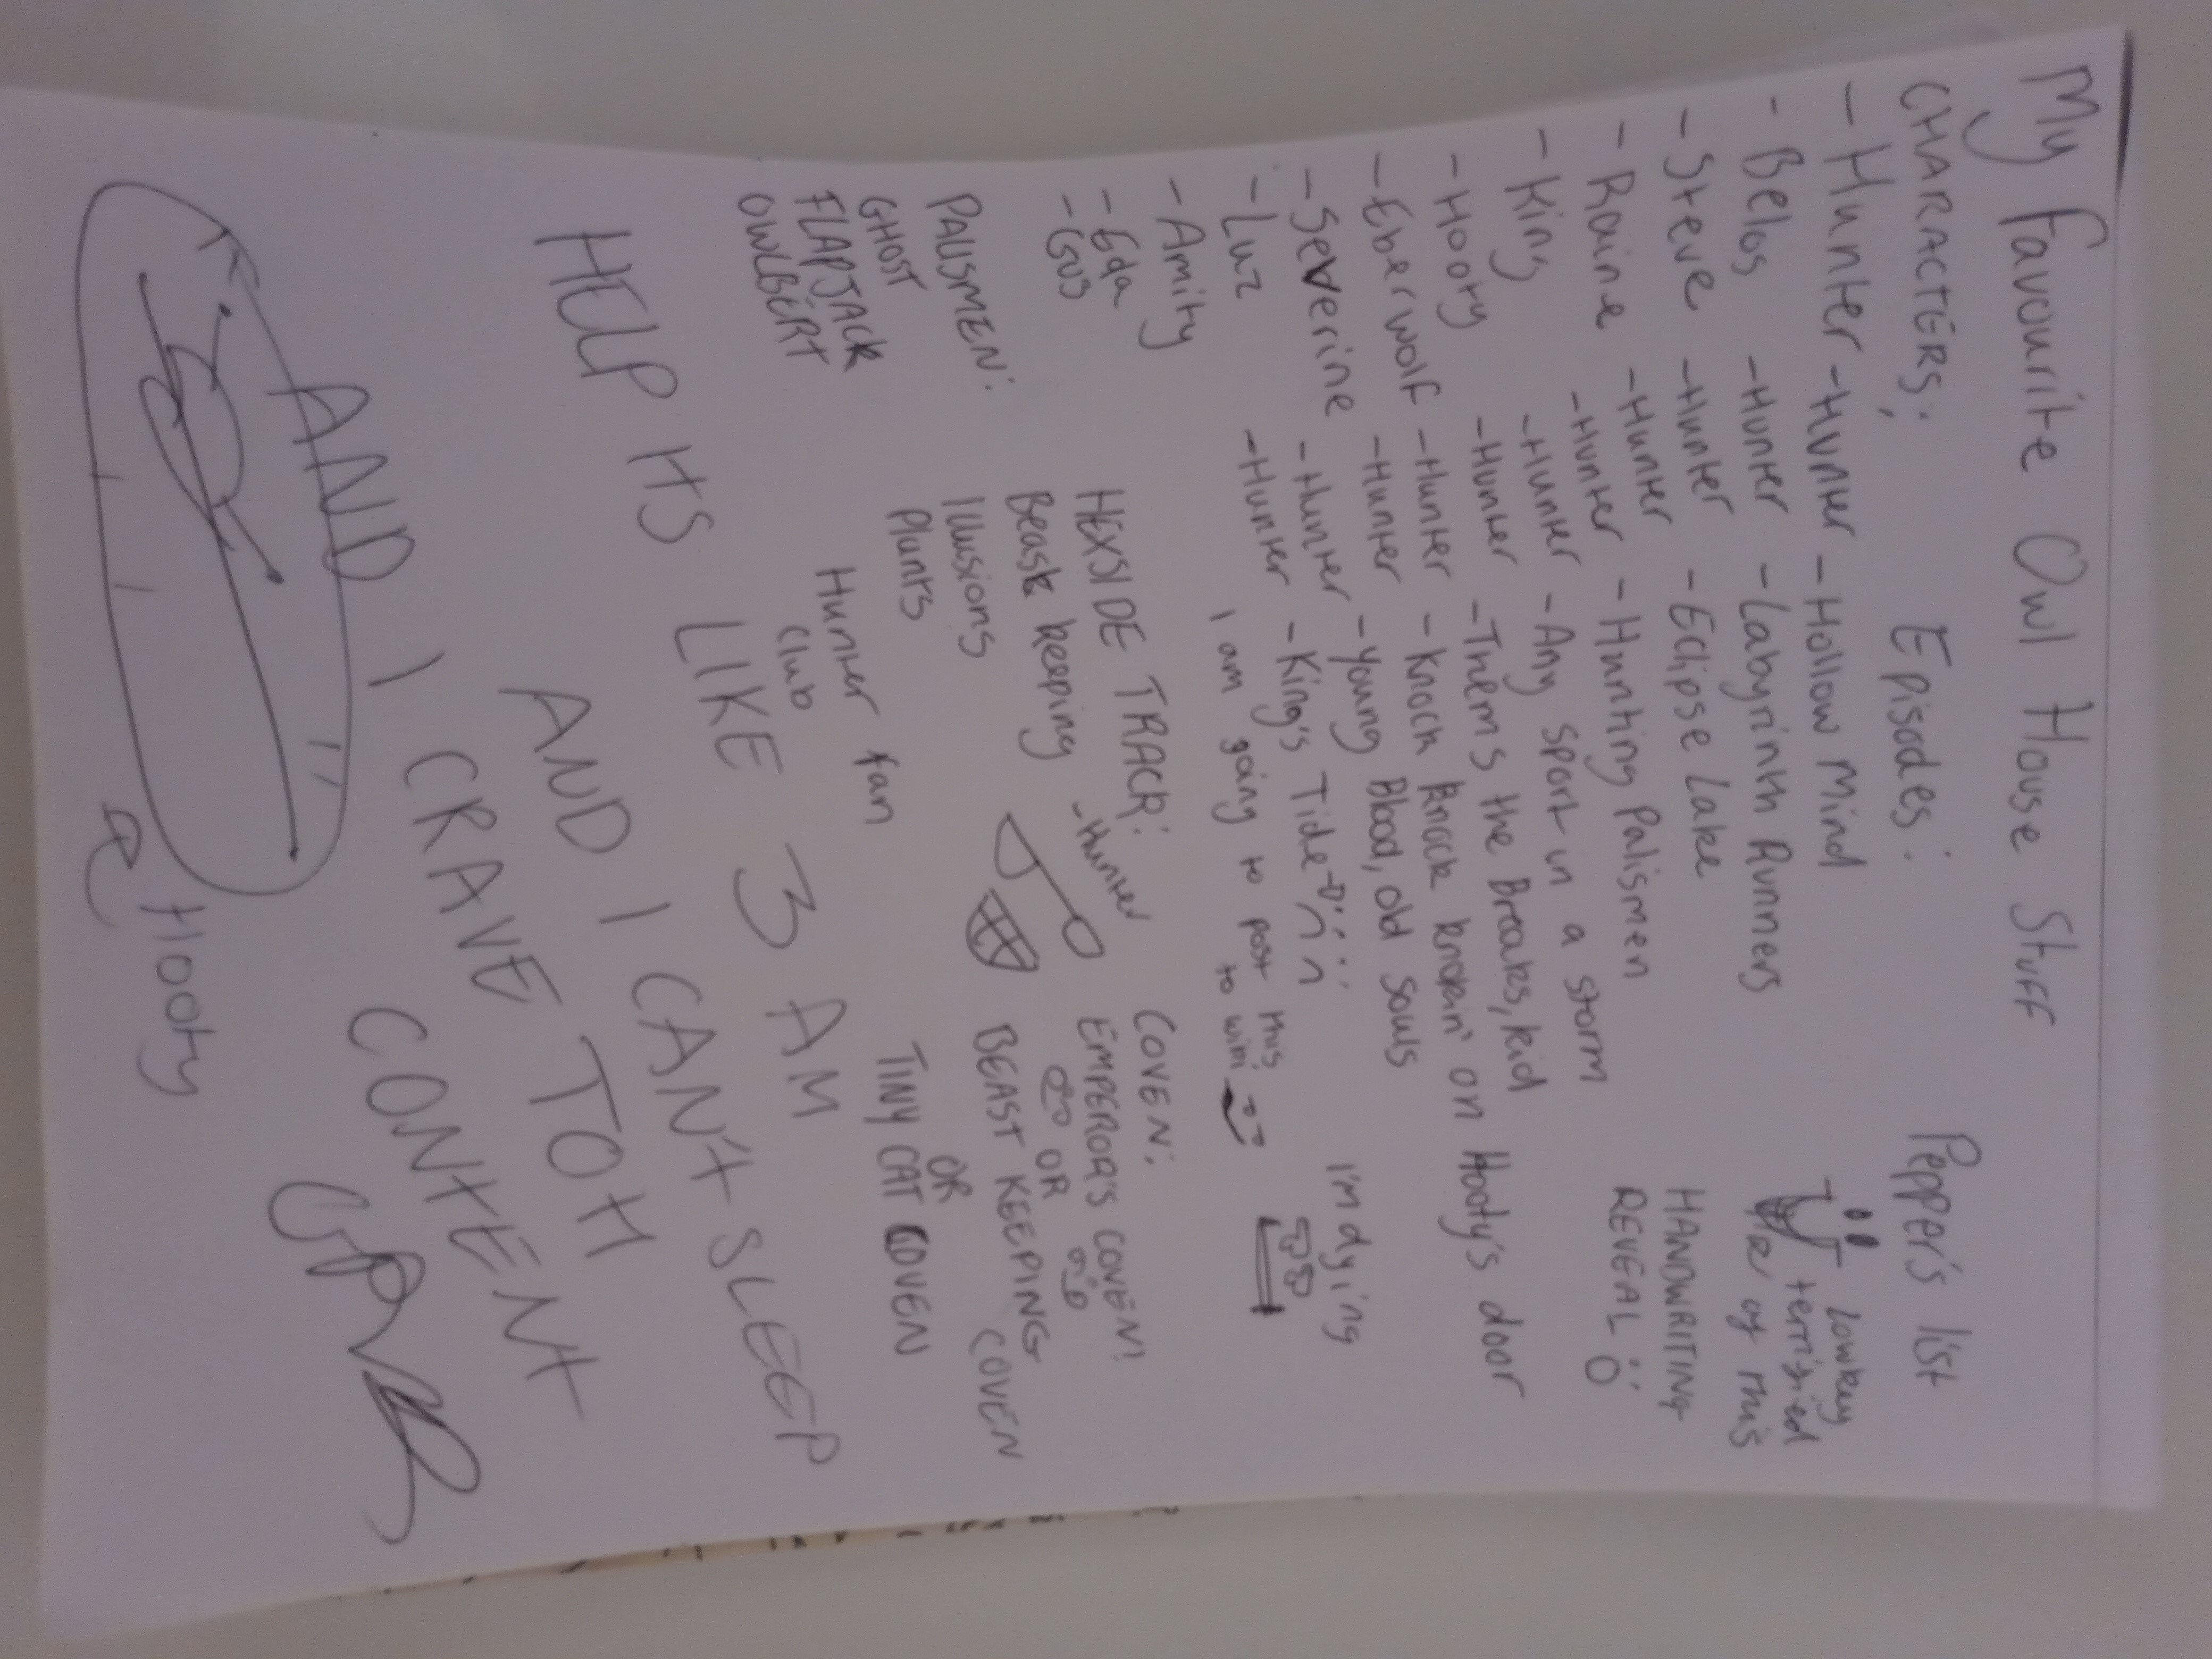 My Favourite Owl House Stuff
CHARACTERS: Episodes: Pepper's list
- Hunter - Hunter - Hollow Mind
- Belos - Hunter - Labyrinth Runners
- Steve - Hunter - Eclipse Lake
- Raine - Hunter - Hunting Palismen
- King - Hunter - Any sport in a storm
- Hooty - Hunter - Them's the Breaks, kid
- Eberwolf - Hunter - Knock Knock knockin' on Hooty's door
- Severine - Hunter - Young Blood, old souls
- Luz - Hunter - King's Tide
- Amity - Hunter
- Eda
- Gus
lowkey
terrified
of this
HANDWRITING
REVEAL
I'm dying
I am going to post this
to wiwi
PALISMEN:
GHOST
FLAPJACK
OWLBERT
HEXSIDE TRACK:
Beast keeping - Hunter
Illusions
Plants
Hunter fan
club
COVEN:
EMPEROR'S COVEN!
OR
BEAST KEEPING COVEN
OR
TINY CAT COVEN
HELP ITS LIKE 3 AM
AND I CAN'T SLEEP
AND I CRAVE TOH
CONTENT
Hooty